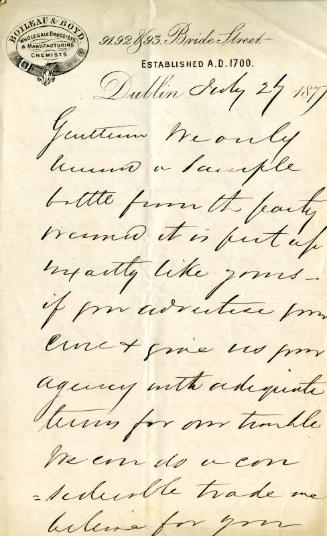 BOILEAU & BOYD
WHOLESALE DRUGGISTS
& MANUFACTURING
CHEMISTS.
91.92 & 93. Bride Street.
ESTABLISHED A.D. 1700.
Dublin July 27 1877
Gentlemen We only
received a Sample
bottle from the party
named it is put up
exactly like yours –
if you advertise your
cure & give us your
agency with adequate
terms for our trouble
We can do a con
=siderable trade we
believe for you